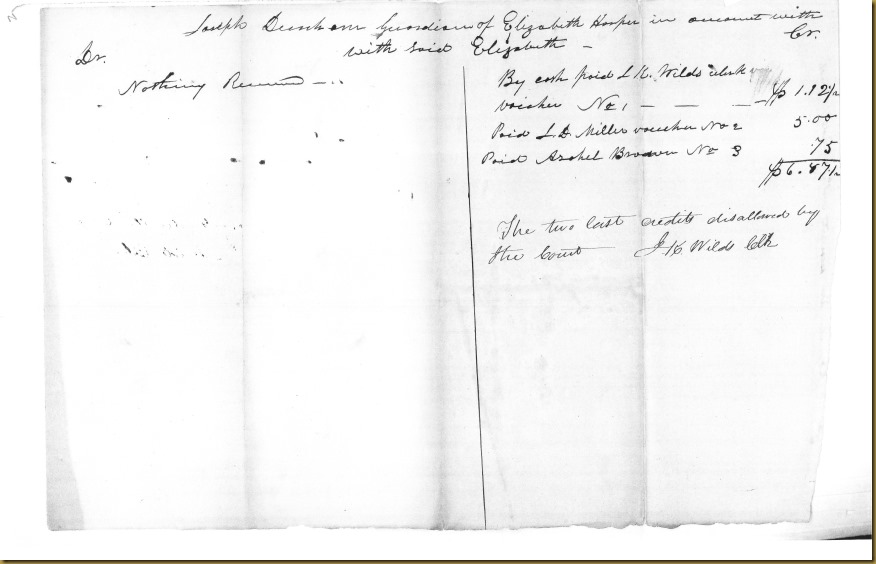 Joseph Dunham Guardian of Elizabeth Hooper in account with
with said Elizabeth —
Dr.
Cr.
Nothing Received —..
By cash paid J. K. Wilds clerk
voucher No 1 — — — $ 1.12 1/2
Paid L. D. Miller voucher No 2 5.00
Paid Asahel Brown No 3 .75
$6.87 1/2
The two last credits disallowed by
the Court J. K. Wilds Clk